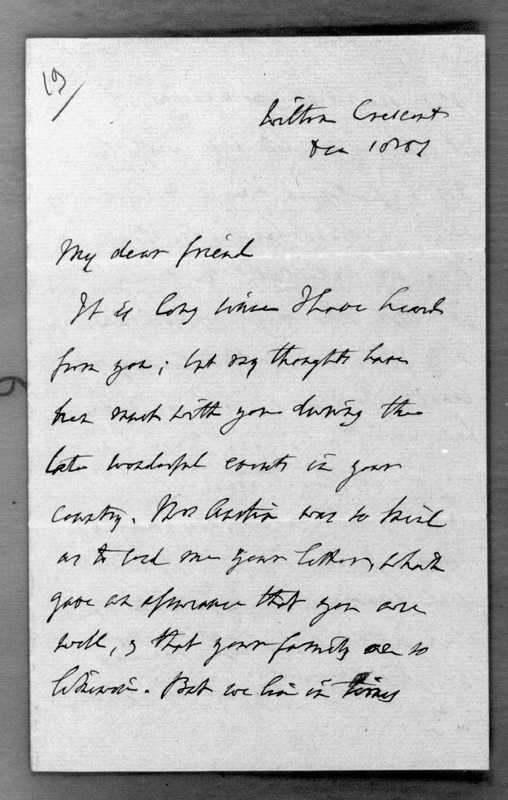 19/
Wilton Crescent
Dec 10
My dear friend
It is long since I have heard
from you; but my thoughts have
been much with you during the
late wonderful events in your
country. Mrs Austin was so kind
as to lend me your letter, which
gave an assurance that you are
well, & that your family are so
likewise. But we live in times